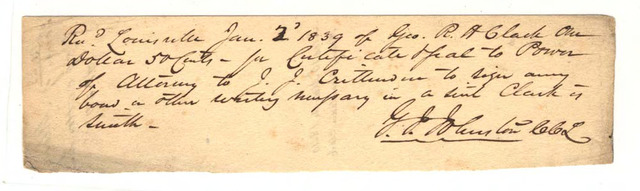 Recd. Louisville Jan. 2d 1839 of Geo. R. H Clark One
Dollar 50 Cents - for Certificate & seal to Power
of Attorney to J. J. Crittenden to sign any
bond or other writing necessary in a suit Clark vs
Smith -
Johnston CCL